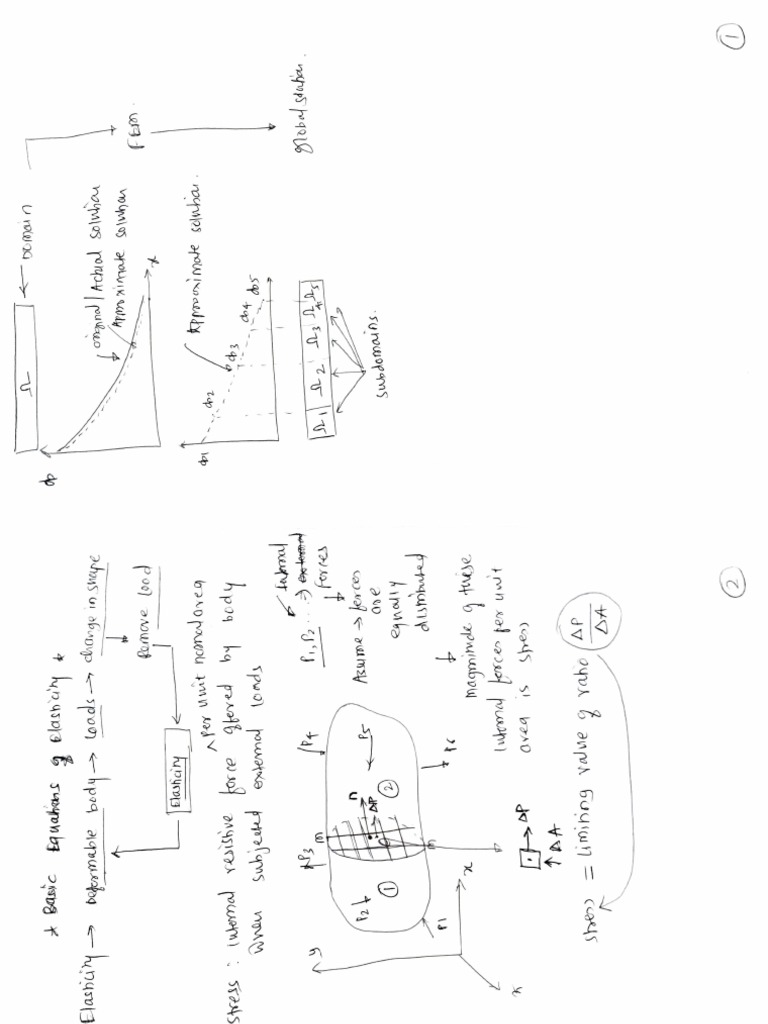 1
Ω
← Domain
FEM.
global solution.
φ
original/Actual solution
Approximate solution
x
Approximate solution.
φ1
φ2
φ3
φ4
φ5
Ω1
Ω2
Ω3
Ω4
Ω5
subdomains.
2
* Basic Equations of Elasticity *
Elasticity → Deformable body → Loads → change in shape
Remove load
Elasticity
per unit normal area
Stress : Internal resistive force offered by body
when subjected external loads
y
x
P1
P2
P3
P4
P5
P6
m
n
ΔP
1
2
P1, P2 ... ⇒ external
internal
forces
Assume → forces
are
equally
distributed
magnitude of these
internal forces per unit
area is stress
→ ΔP
↑ ΔA
stress = Limiting value of ratio ΔP/ΔA